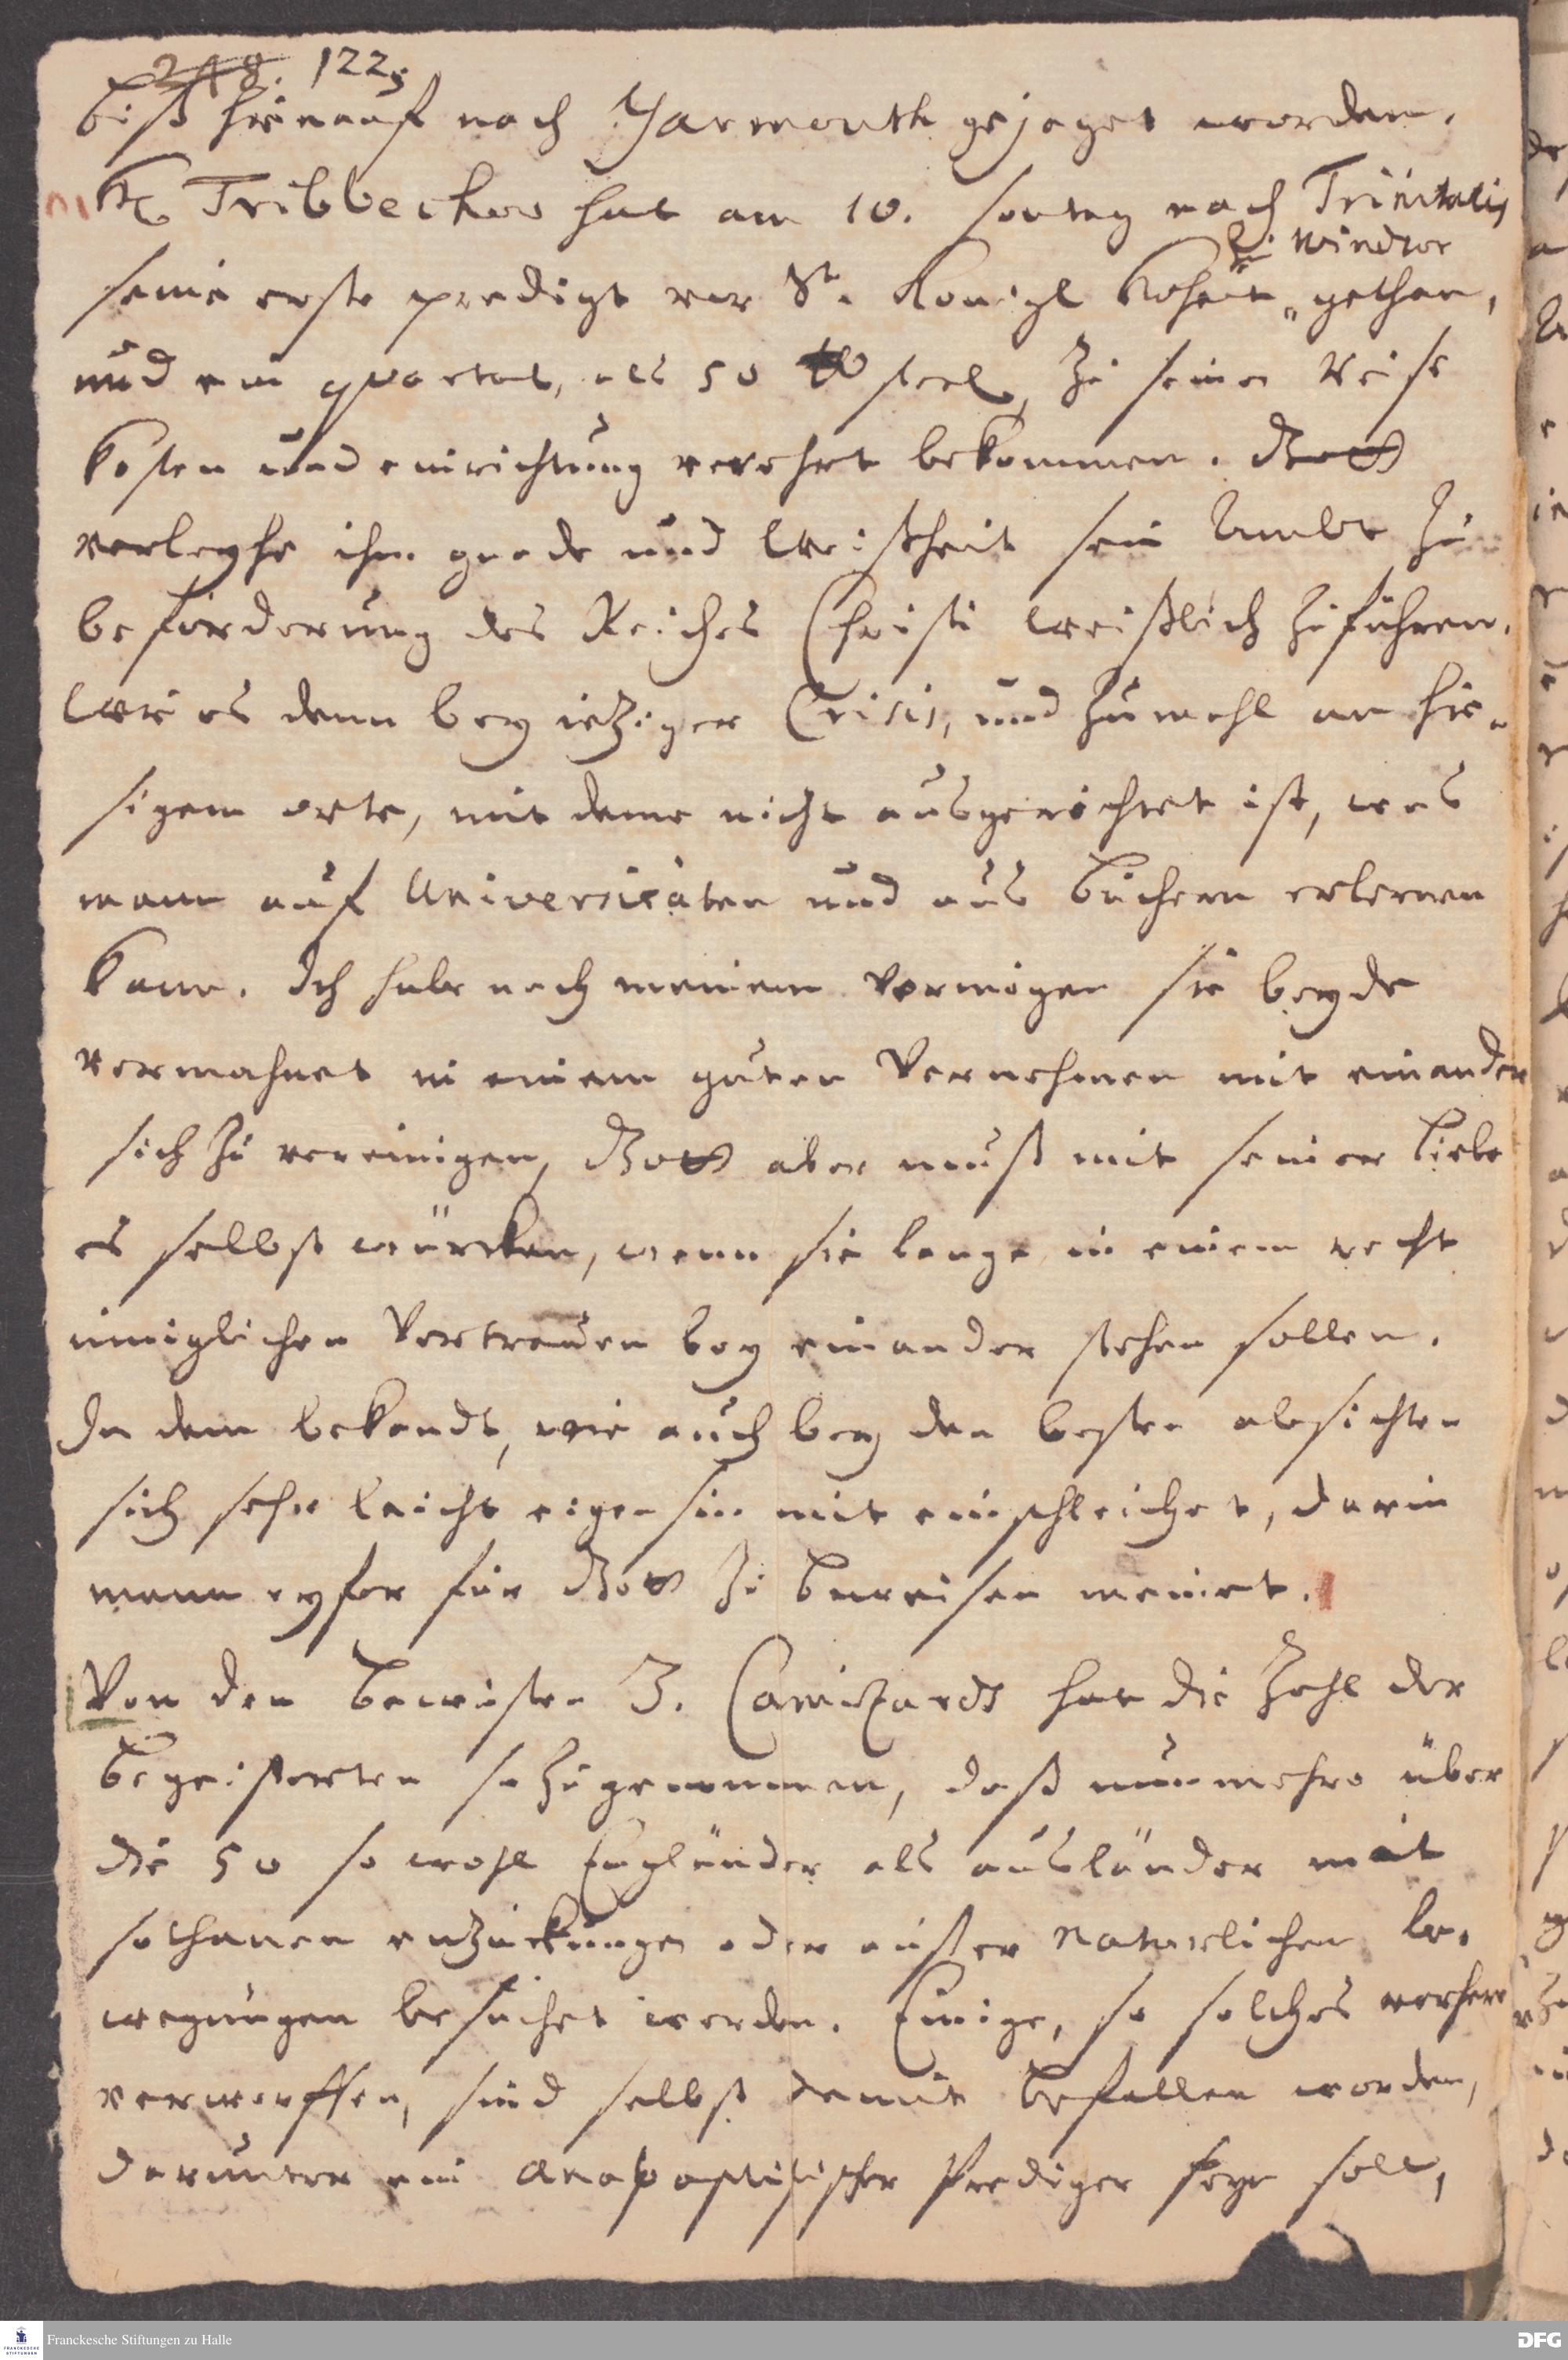 248. 122;
biß hinauf nach Yarmouth gejaget worden.
H. Tribbeckow hat am 10. sontag nach Trinitatis
bei Windsor
seine erste predigt vor Sr. Königl Hoheit „ gethan,
und ein quartal, als 50 lb sterl, zu seiner Reise
kosten und einrichtung verehrt bekommen. Gott
verleyhe ihm gnade und Weißheit sein Ambt zu
beförderung des Reiches Christi weißlich zu führen.
Wie es denn bey ietziger Crisis, und zumahl an hie-
sigem orte, mit deme nicht ausgerichtet ist, was
mann auf Universitäten und aus büchern erlernen
kann. Ich habe nach meinem Vermögen sie beyde
vermahnet in einem guten Vernehmen mit einander
sich zu vereinigen, Gott aber muß mit seiner liebe
es selbst würcken, wenn sie lange in einem recht
inniglichen Vertrauen bey einander stehen sollen.
In dem bekandt, wie auch bey den besten absichten
sich sehr leicht eigensin mit einschleichet, darin
mann eyfer für Gott zu beweisen meinet.
Von den bewusten 3. Camizards hat die Zahl der
begeisterten so zugenommen, daß nunmehro über
die 50 so wohl Engländer als ausländer mit
sothanen entzückungen oder ausser naturlichen be-
wegungen besuchet werden. Einige, so solches vorhero
verworffen, sind selbst damit befallen worden,
darunter ein anabaptistischer Prediger seyn soll,
Franckesche Stiftungen zu Halle
FRANCKESCHE STIFTUNGEN
DFG